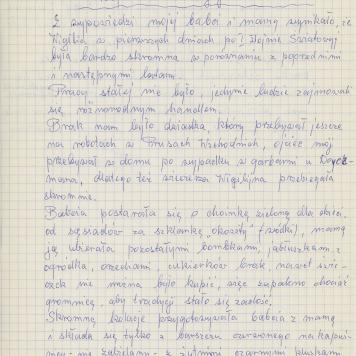 Z wypowiedzi mojej babci i mamy wynikało, że
Wigilia w pierwszych dniach po? Wojnie Światowej
była bardzo skromna w porównaniu z poprzednimi
i następnymi latami.
Pracy stałej nie było, jedynie ludzie zajmowali
się różnorodnym handlem.
Brak nam było dziadka, który przebywał jeszcze
na robotach w Prusach Wschodnich, ojciec mój
przebywał w domu po wypadku w garbarni u
mana, dlatego też wieczerza Wigilijna przebiegała
skromnie.
Babcia postarała się o choinkę zieloną dla dzieci,
od sąsiadów za szklankę "okowity" (wódki), mama
ją ubierała pozostałymi bombkami, jabłuszkami z
ogródka, orzechami, cukierków brak, nawet świe-
czek nie można było kupić, więc zapalono chociaż
gromnicę, aby tradycji stało się zadość.
Skromną kolację przygotowywała babcia z mamą
i składa się tylko z barszczu czerwonego na kapuś-
z czarnymi kluskami